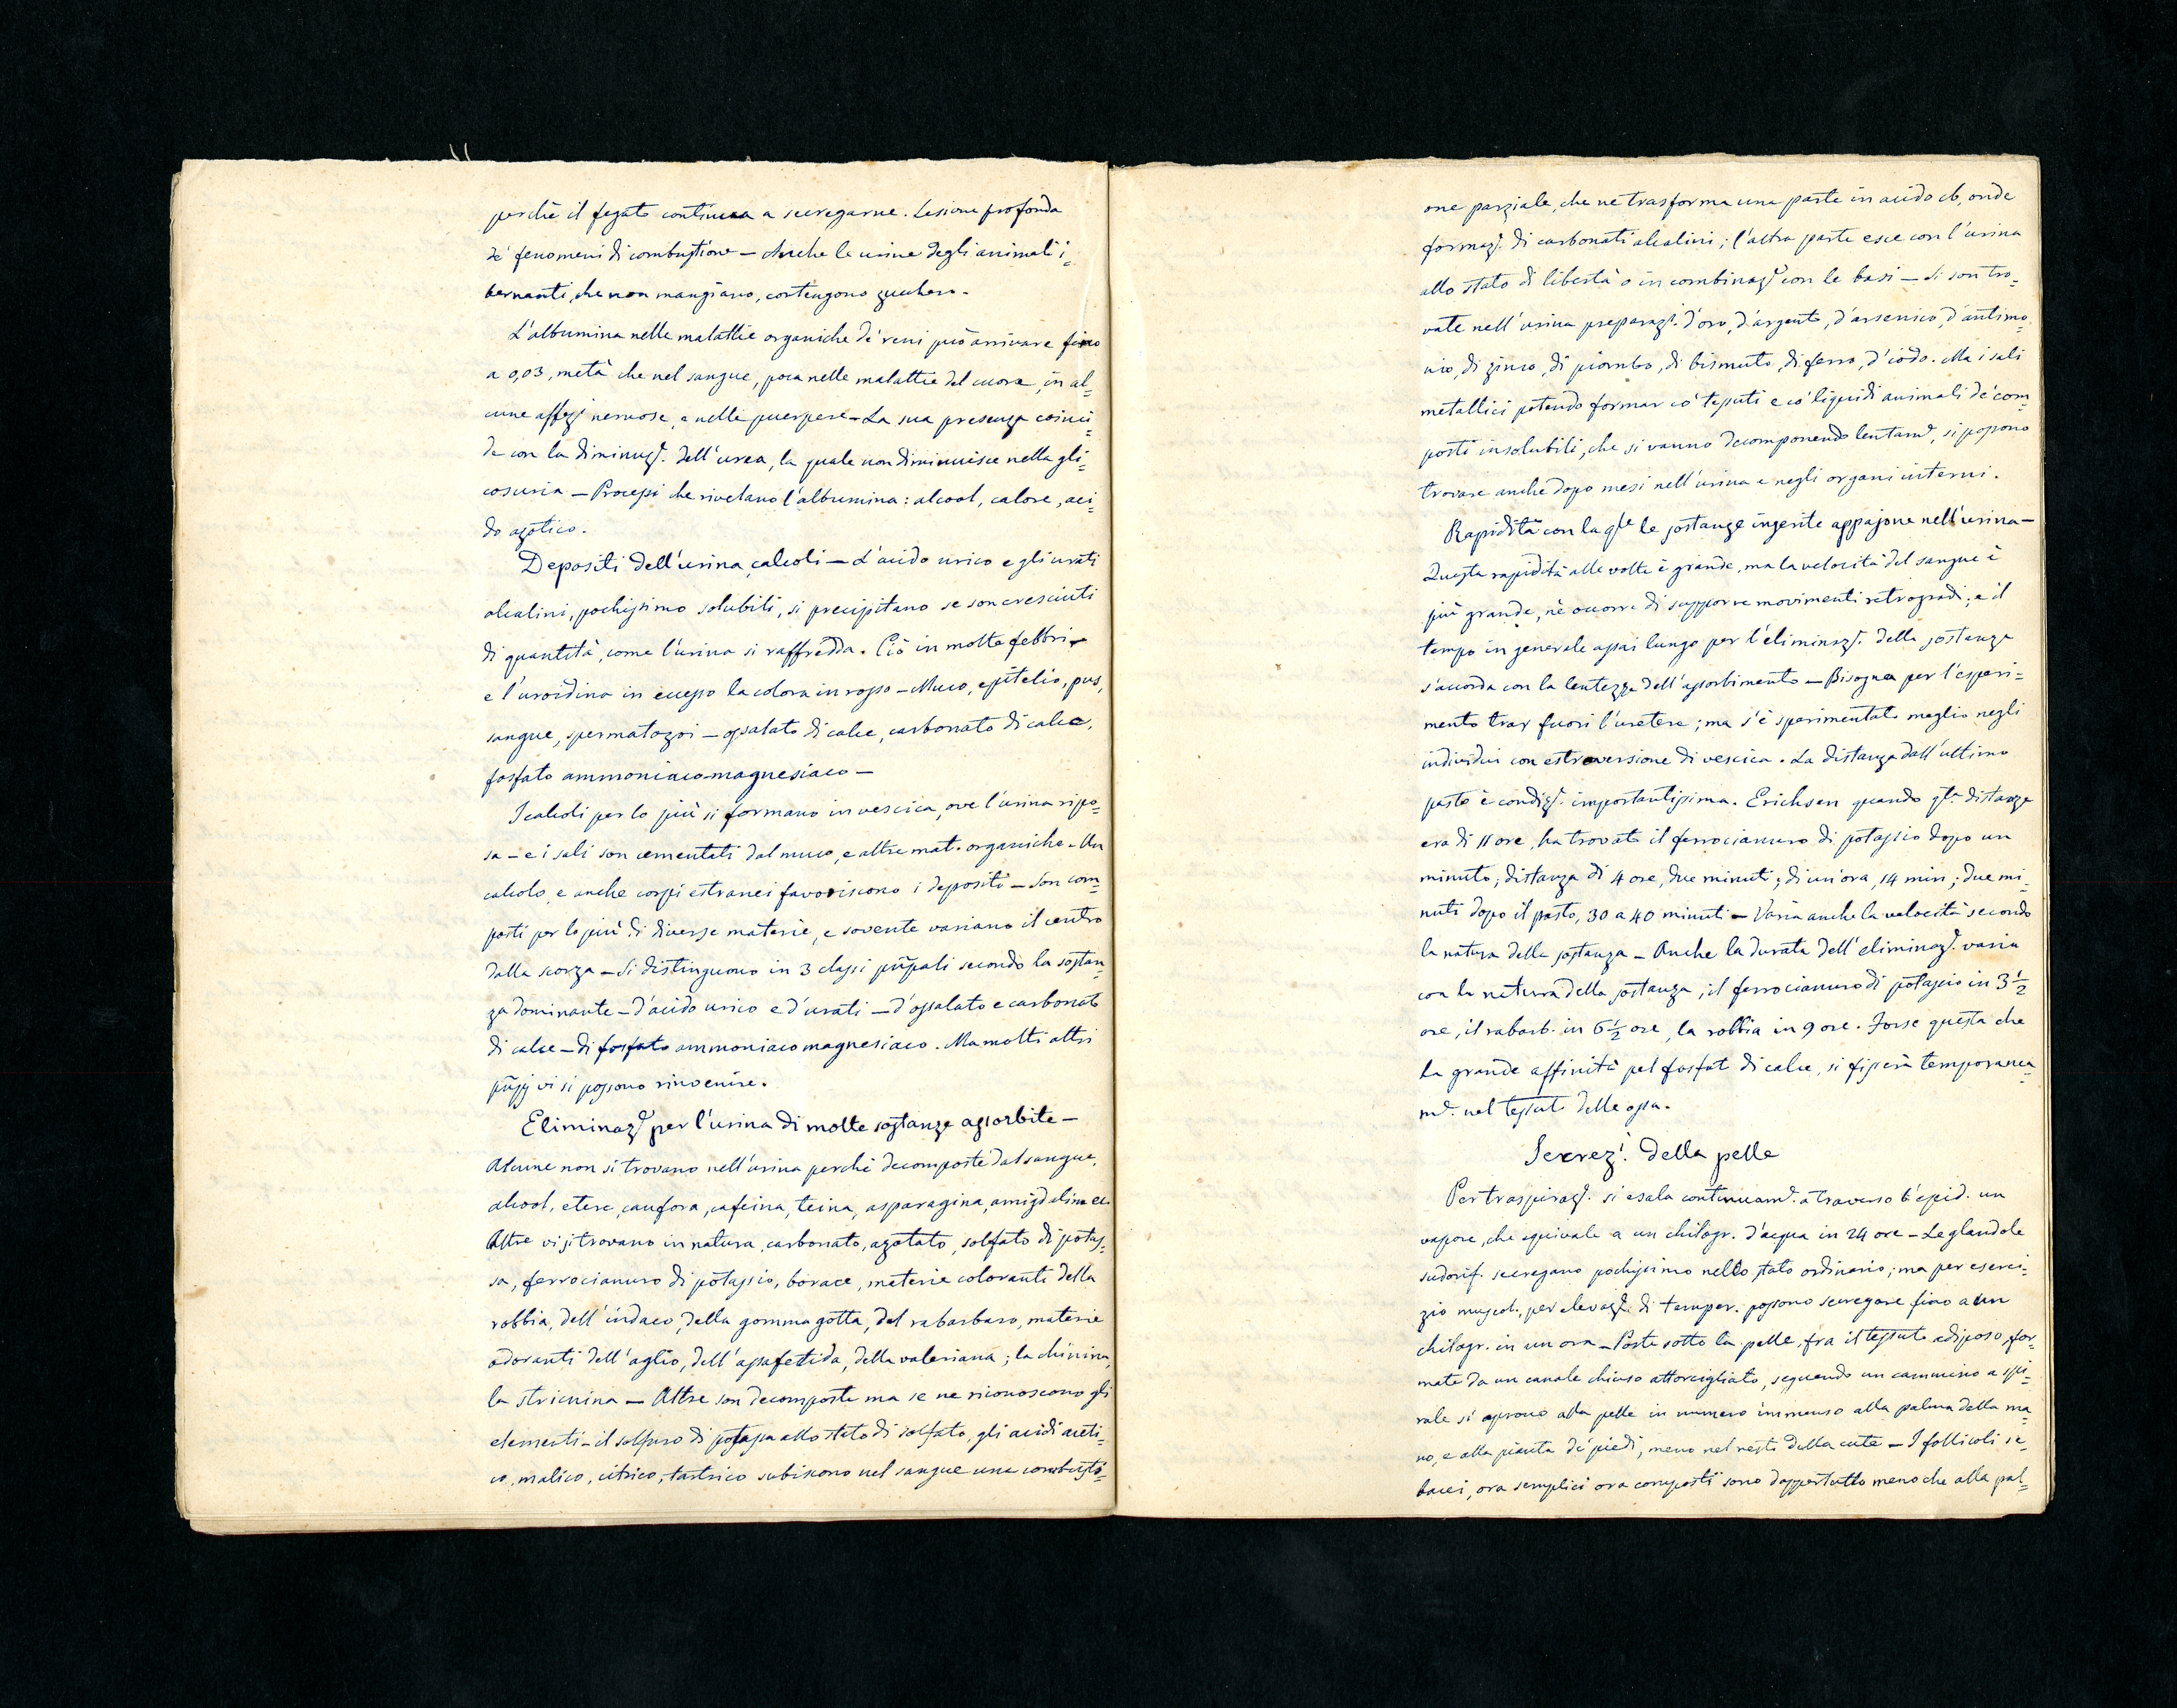 perchè il fegato continua a secregarne. Lesione profonda
de' fenomeni di combustione — Anche le urine degli animali i=
bernanti, che non mangiano, contengono zucchero.
L'albumina nelle malattie organiche de' reni può arrivare fino
a 0,03, metà che nel sangue, poca nelle malattie del cuore, in al=
cune affez.i nervose, e nelle puerpere — La sua presenza coinci=
de con la diminuz.e dell'urea, la quale non diminuisce nella gli=
cosuria — Processi che rivelano l'albumina: alcool, calore, aci=
do azotico.
Depositi dell'urina, calcoli — L'acido urico e gli urati
alcalini, pochissimo solubili, si precipitano se son cresciuti
di quantità, come l'urina si raffredda. Ciò in molte febbri —
e l'uroidina in eccesso la colora in rosso — Muco, epitelio, pus,
sangue, spermatozoi — ossalato di calce, carbonato di calce,
fosfato ammoniaco-magnesiaco —
I calcoli per lo più si formano in vescica, ove l'urina ripo=
sa — e i sali son cementati dal muco, e altre mat. organiche — Un
calcolo, e anche corpi estranei favoriscono i depositi — Son com=
posti per lo più di diverse materie, e sovente variano il centro
dalla scorza — Si distinguono in 3 classi pñpali secondo la sostan=
za dominante — d'acido urico e d'urati — d'ossalato e carbonato
di calce — di fosfato ammoniaco magnesiaco. Ma molti altri
pñpj vi si possono rinvenire.
Eliminaz.e per l'urina di molte sostanze assorbite —
Alcune non si trovano nell'urina perchè decomposte dal sangue,
alcool, etere, canfora, cafeina, teina, asparagina, amigdalina ec.
Altre vi si trovano in natura, carbonato, azotato, solfato di potas=
sa, ferrocianuro di potassio, borace, materie coloranti della
robbia, dell'indaco, della gomma gotta, del rabarbaro, materie
odoranti dell'aglio, dell'assafetida, della valeriana; la chinina,
la stricnina — Altre son decomposte ma se ne riconoscono gli
elementi — il solfuro di potassa allo stato di solfato, gli acidi aceti=
co, malico, citrico, tartrico subiscono nel sangue una combusti=
one parziale, che ne trasforma una parte in acido cb, onde
formaz.e di carbonati alcalini; l'altra parte esce con l'urina
allo stato di libertà o in combinaz.e con le basi — Si son tro=
vate nell'urina preparaz.i d'oro, d'argento, d'arsenico, d'antimo
nio, di zinco, di piombo, di bismuto, di ferro, d'iodo. Ma i sali
metallici potendo formar co' tessuti e co' liquidi animali de' com=
posti insolubili, che si vanno decomponendo lentam.e, si possono
trovare anche dopo mesi nell'urina e negli organi interni.
Rapidità con la q.le le sostanze ingerite appajono nell'urina —
Questa rapidità alle volte è grande, ma la velocità del sangue è
più grande, nè occorre di supporre movimenti retrogradi; e il
tempo in generale assai lungo per l'eliminaz.e della sostanza
s'accorda con la lentezza dell'assorbimento — Bisogna per l'esperi=
mento trar fuori l'uretere; ma s'è sperimentato meglio negli
individui con estroversione di vescica. La distanza dall'ultimo
pasto è condiz.e importantissima. Erichsen quando q.ta distanza
era di 11 ore, ha trovato il ferrocianuro di potassio dopo un
minuto; distanza di 4 ore, due minuti; di un'ora, 14 min; due mi=
nuti dopo il pasto, 30 a 40 minuti — Varia anche la velocità secondo
la natura della sostanza — Anche la durata dell'eliminaz.e varia
con la natura della sostanza; il ferrocianuro di potassio in 3 ½
ore, il rabarb. in 6 ½ ore, la robbia in 9 ore. Forse questa che
ha grande affinità pel fosfat di calce, si fisserà temporanea=
m.e nel tessuto delle ossa.
Secrez.i della pelle
Per traspiraz.e si esala continuam.e a traverso l'epid. un
vapore, che equivale a un chilogr. d'acqua in 24 ore — Le glandole
sudorif. secregano pochissimo nello stato ordinario; ma per eserci=
zio muscol., per elevaz.e di temper. possono secregare fino a un
chilogr. in un ora — Poste sotto la pelle, fra il tessuto adiposo, for=
mate da un canale chiuso attorcigliato, seguendo un cammino a spi=
rale si aprono alla pelle in numero immenso alla palma della ma=
no, e alla pianta de' piedi, meno nel resto della cute — I follicoli se=
bacei, ora semplici ora composti sono dappertutto meno che alla pal=